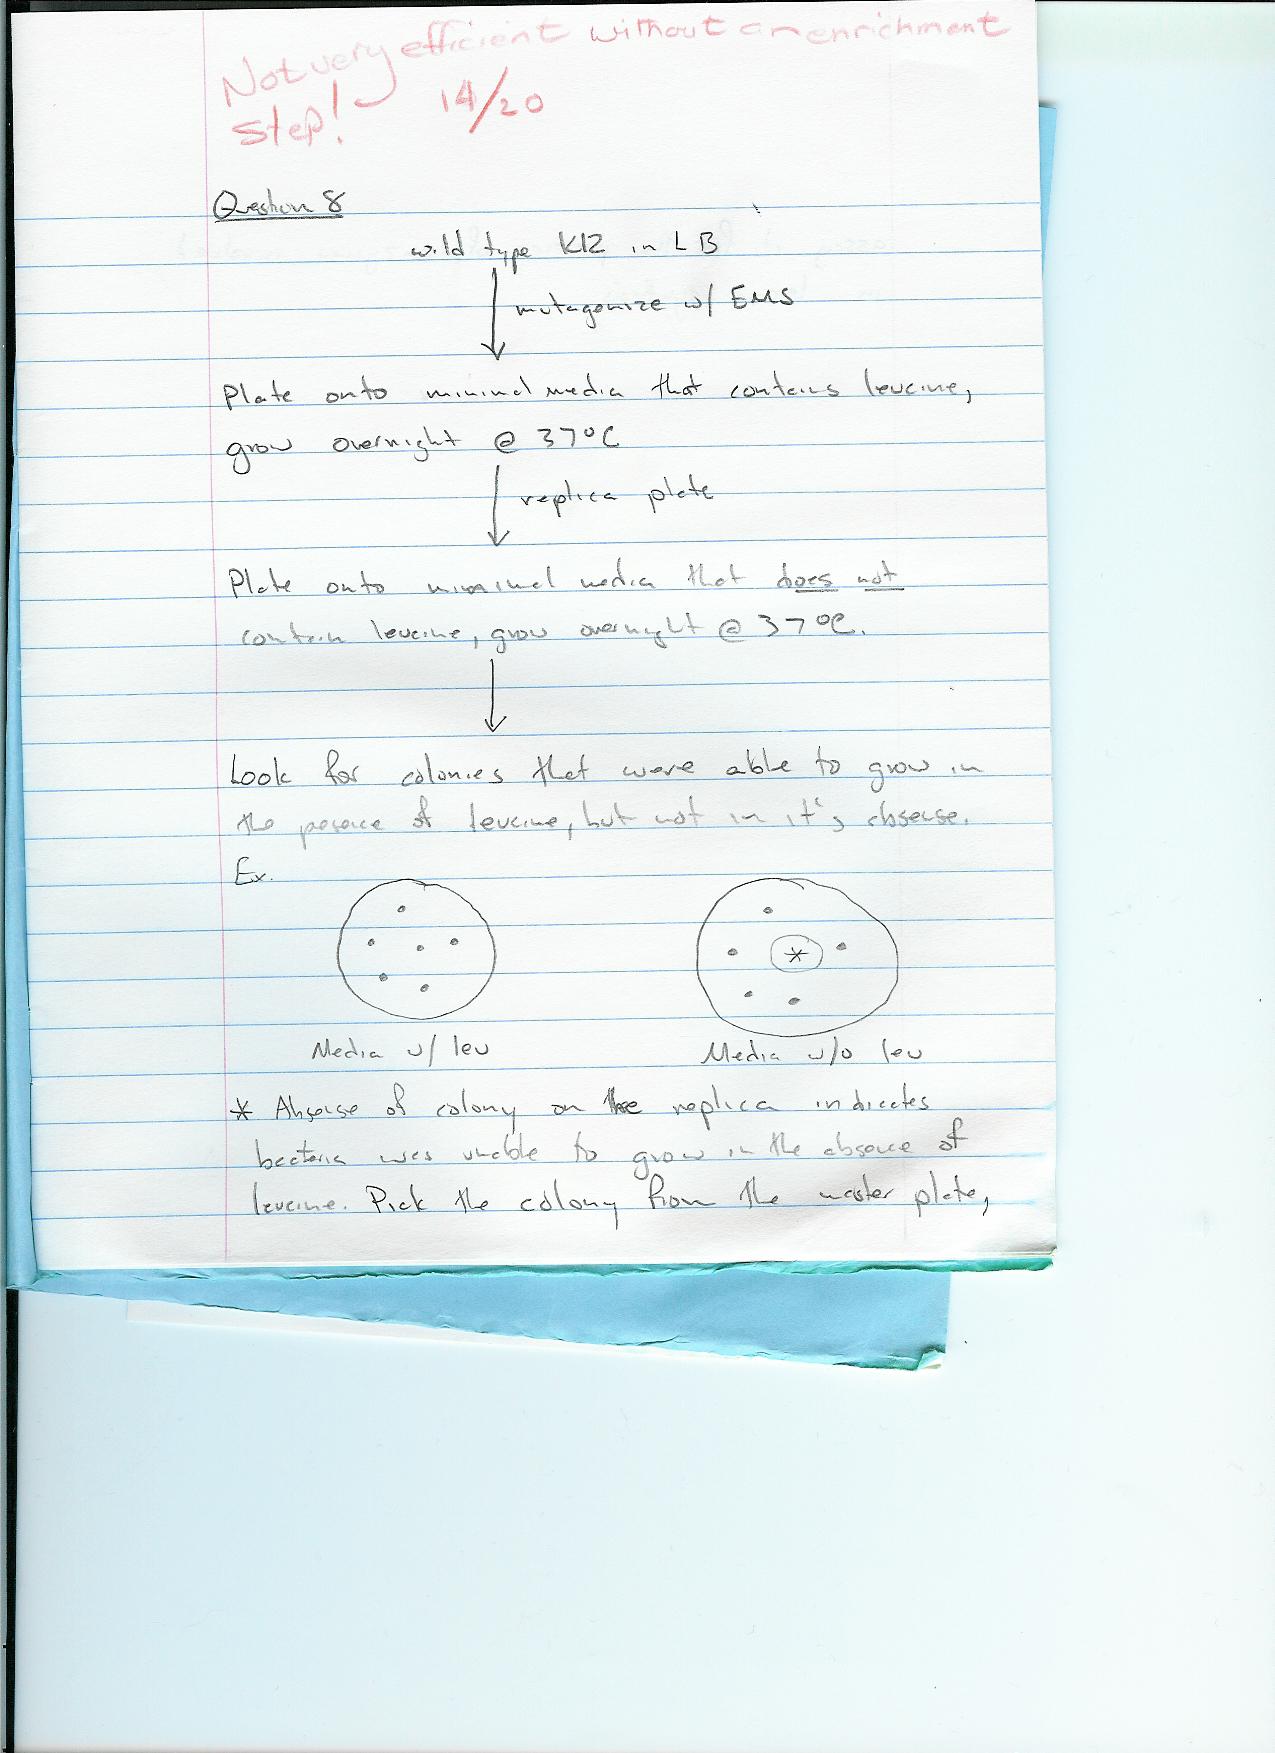 Not very efficient without an enrichment
step! 14/20
Question 8
wild type K12 in LB
mutagenize w/ EMS
Plate onto minimal media that contains leucine,
grow overnight @ 37°C
replica plate
Plate onto minimal media that does not
contain leucine, grow overnight @ 37°C.
Look for colonies that were able to grow in
the presence of leucine, but not in it's absense.
Ex.
*
Media w/ leu Media w/o leu
* Absense of colony on the replica indicates
bacteria was unable to grow in the absence of
leucine. Pick the colony from the master plate,